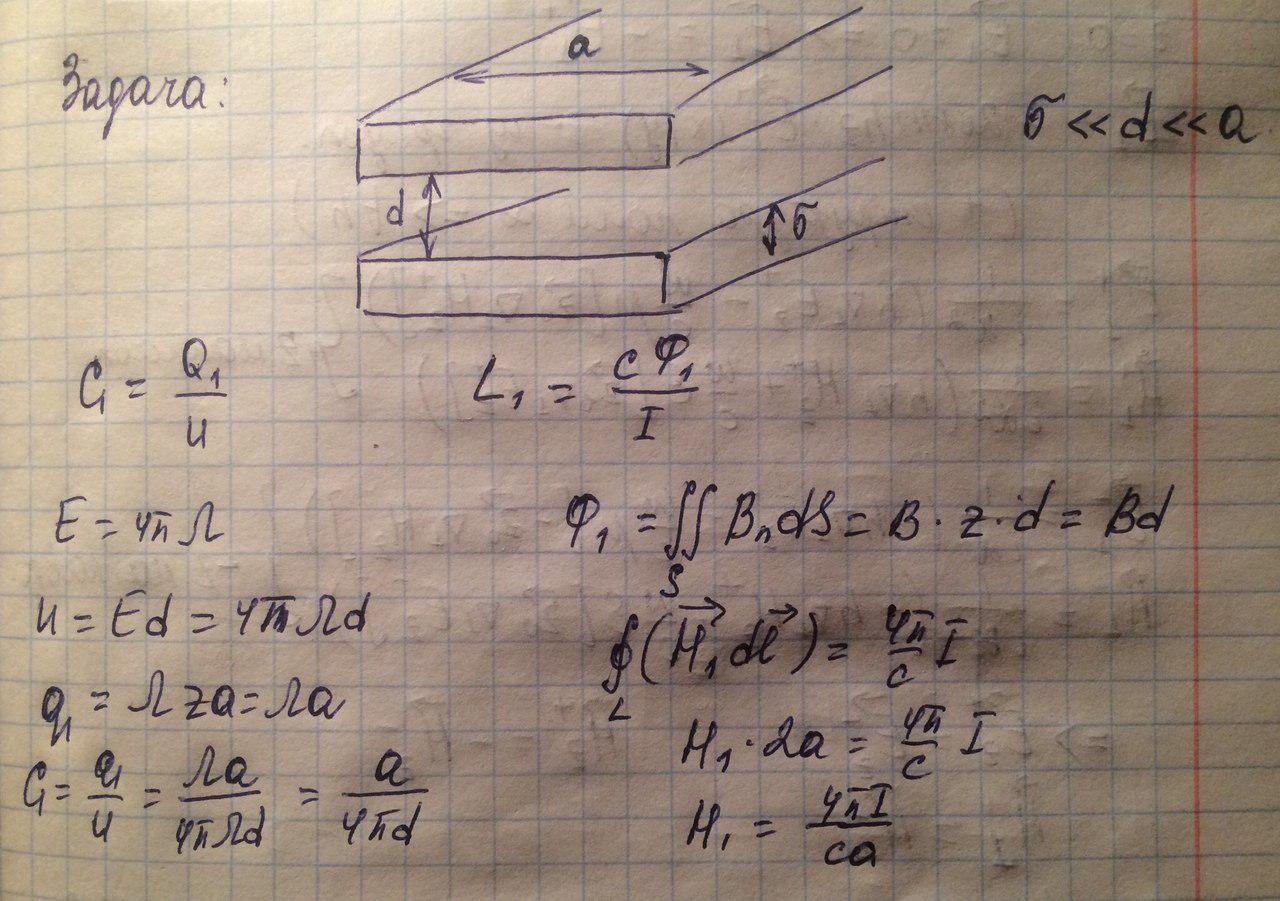 Задача:
a
σ << d << a
d
σ
C₁ = Q₁/U
L₁ = cΦ₁/I
E = 4πΛ
Φ₁ = ∬_S Bₙ dS = B · z · d = Bd
U = Ed = 4πΛd
∮_L (H⃗₁ dl⃗) = 4π/c I
q₁ = Λza = Λa
H₁ · 2a = 4π/c I
C₁ = q₁/U = Λa/4πΛd = a/4πd
H₁ = 4πI/ca